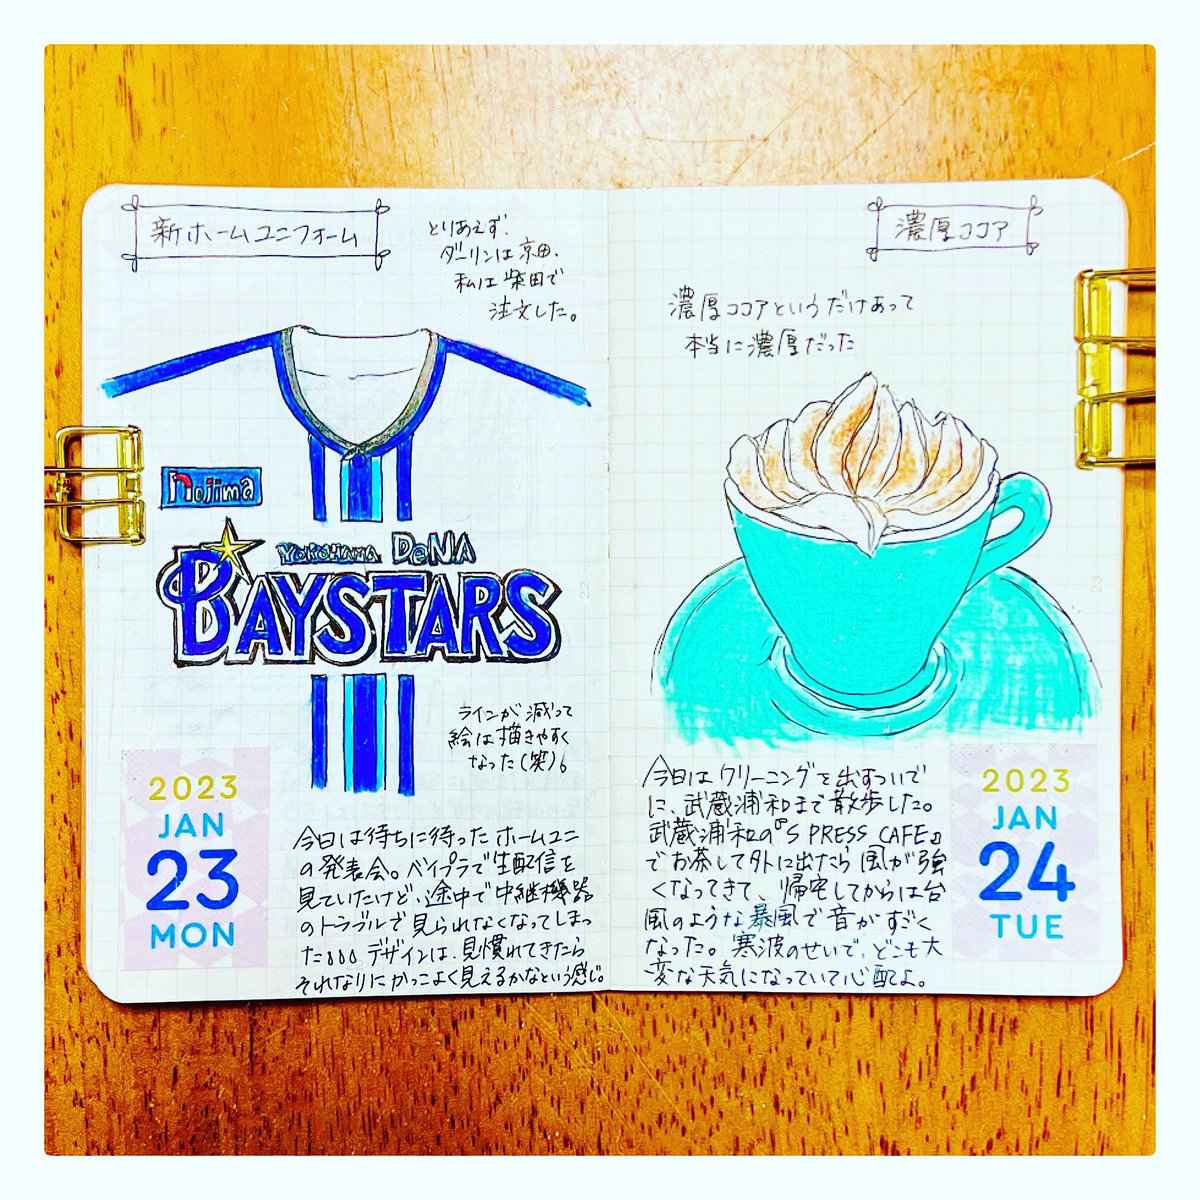 新ホームユニフォーム
とりあえず、
ダーリンは京田、
私は柴田で
注文した。
nojima
YOKOHAMA DeNA
BAYSTARS
ラインが減って
絵は描きやすく
なった(笑)。
2023
JAN
23
MON
今日は待ちに待ったホームユニ
の発表会。ベイプラで生配信を
見ていたけど、途中で中継機器
のトラブルで見られなくなってしまっ
た。。。デザインは、見慣れてきたら
それなりにかっこよく見えるかなという感じ。
22
濃厚ココア
濃厚ココアというだけあって
本当に濃厚だった
23
今日はクリーニングを出すついで
に、武蔵浦和まで散歩した。
武蔵浦和の『S PRESS CAFE』
でお茶して外に出たら風が強
くなってきて、帰宅してからは台
風のような暴風で音がすごく
なった。寒波のせいで、どこも大
変な天気になっていて心配よ。
2023
JAN
24
TUE